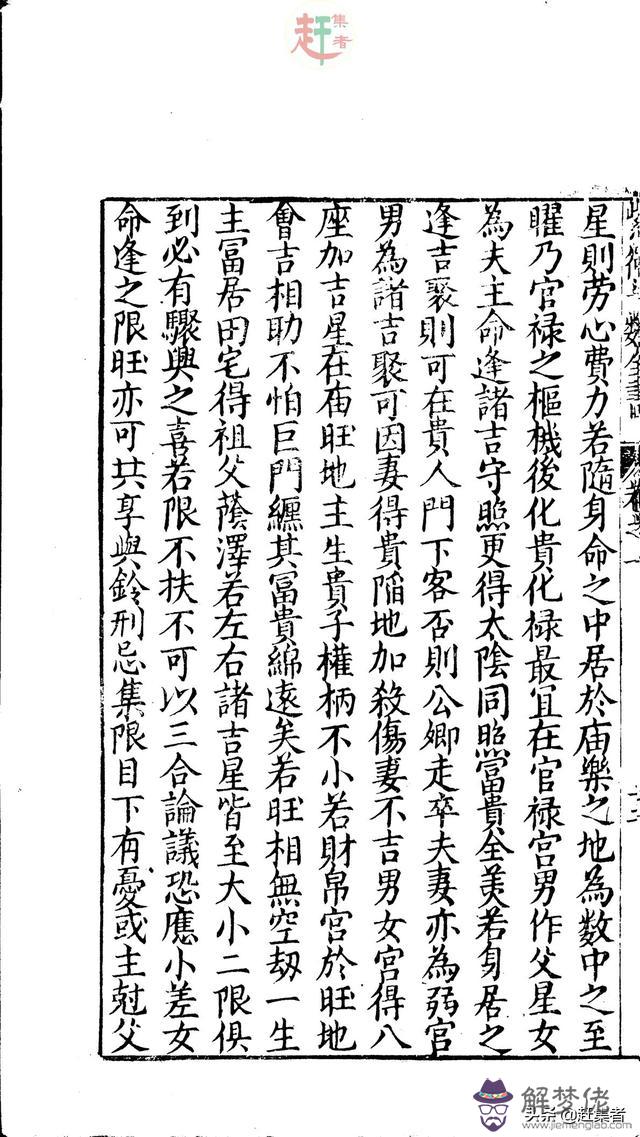 赶集者
數全書
卷之一
十二
星則劳心費力若隨身命之中居於庙樂之地為数中之至
曜乃官禄之樞機後化貴化禄最宜在官禄宫男作父星女
為夫主命逢諸吉守照更得太陰同照富貴全美若身居之
逢吉聚則可在貴人門下客否則公卿走卒夫妻亦為弱宫
男為諸吉聚可因妻得貴陷地加殺傷妻不吉男女宫得八
座加吉星在庙旺地主生貴子權柄不小若財帛宫於旺地
會吉相助不怕巨門纏其冨貴綿遠矣若旺相無空刼一生
主冨居田宅得祖父蔭澤若左右諸吉星皆至大小二限俱
到必有驟興之喜若限不扶不可以三合論議恐應小差女
命逢之限旺亦可共享與鈴刑忌集限目下有憂或主尅父
解梦佬
头条@赶集者
www.jiemenglao.com